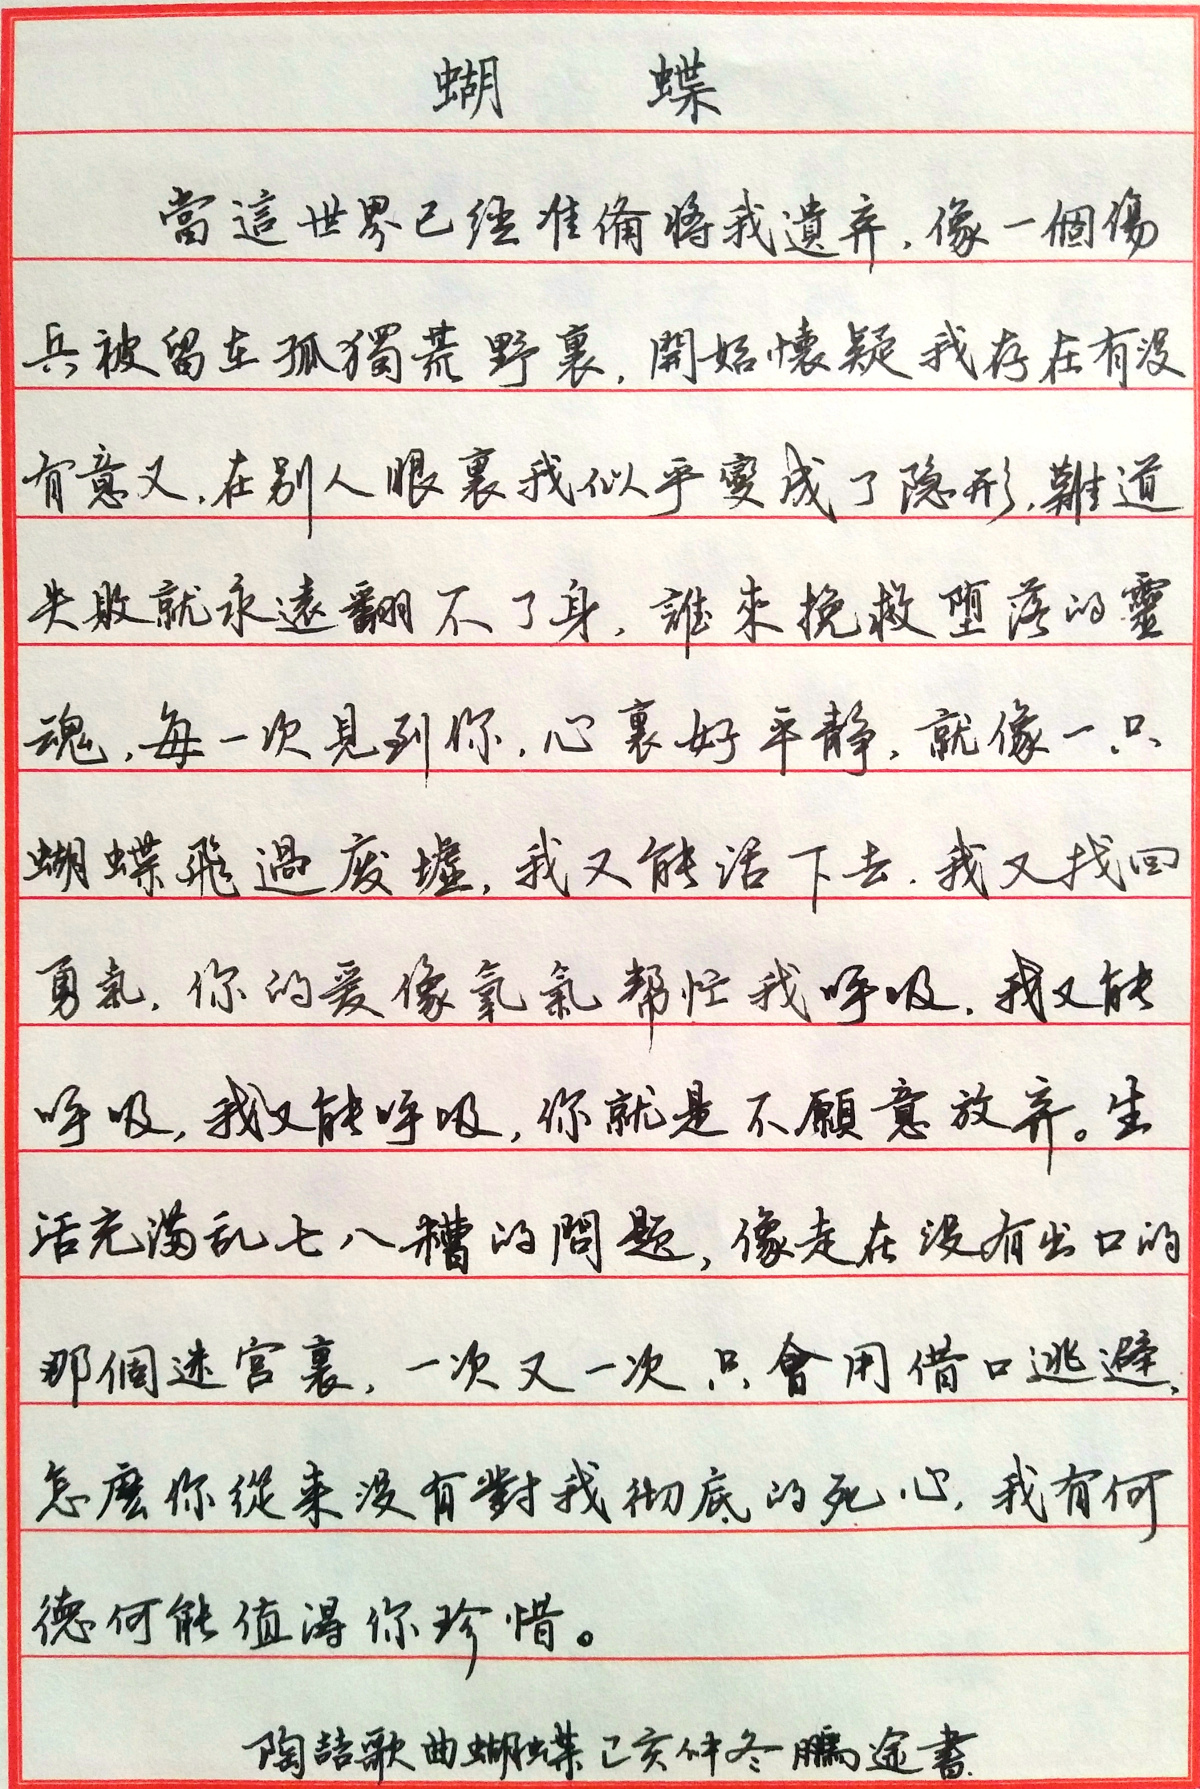 蝴蝶
當這世界已經准備將我遺弃，像一個傷
兵被留在孤獨荒野裏，開始懷疑我存在有没
有意义，在别人眼裏我似乎變成了隐形，難道
失敗就永遠翻不了身，誰來挽救墮落的靈
魂，每一次見到你，心裏好平静，就像一只
蝴蝶飛過廢墟，我又能活下去，我又找回
勇氣，你的爱像氧氣幫忙我呼吸，我又能
呼吸，我又能呼吸，你就是不願意放弃。生
活充滿乱七八糟的問題，像走在没有出口的
那個迷宫裏，一次又一次只會用借口逃避，
怎麽你從来没有對我彻底的死心，我有何
德何能值得你珍惜。
陶喆歌曲蝴蝶己亥仲冬鵬途書